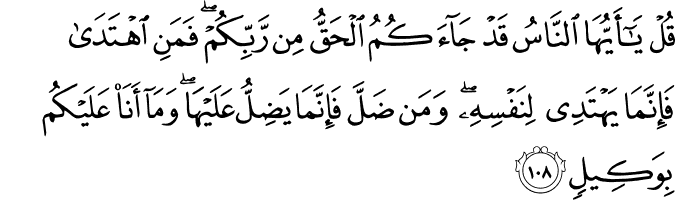 قُلۡ يَـٰٓأَيُّهَا ٱلنَّاسُ قَدۡ جَآءَكُمُ ٱلۡحَقُّ مِن رَّبِّكُمۡۖ فَمَنِ ٱهۡتَدَىٰ
فَإِنَّمَا يَهۡتَدِي لِنَفۡسِهِۦۖ وَمَن ضَلَّ فَإِنَّمَا يَضِلُّ عَلَيۡهَاۖ وَمَآ أَنَا۠ عَلَيۡكُم
بِوَكِيلٖ ١٠٨